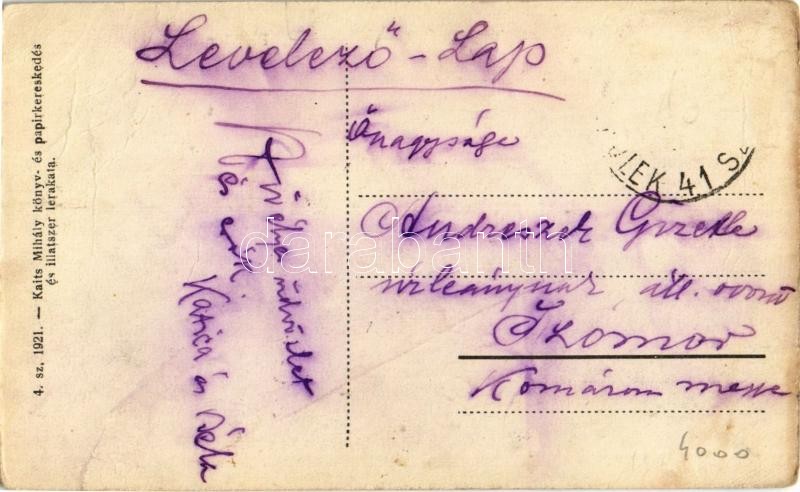 Levelező-Lap
4. sz, 1921. — Kaits Mihály könyv- és papirkereskedés
és illatszer lerakata.
üdvözlet
és
Katica és Béla
Őnagysága
Andreszek Gizella
úrleánynak, áll. óvónő
Szomor
Komárom megye
LEK 41 S
4000
darabanth